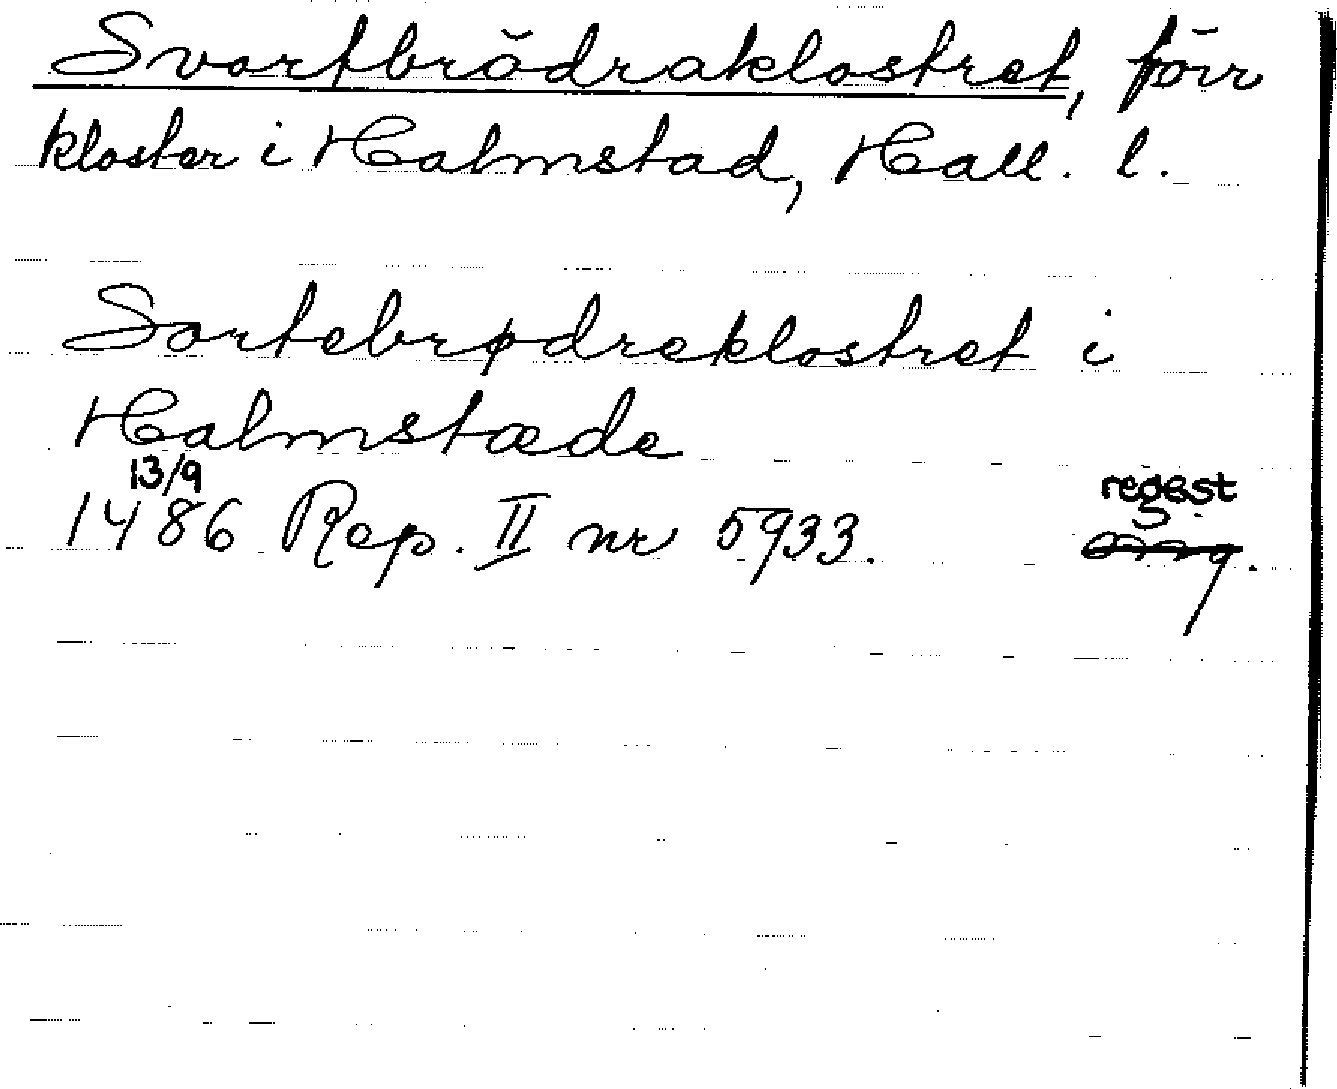 Svartbrödraklostret, förr
kloster i Halmstad, Hall. l.
Sortebrødreklostret i
Halmstæde
13/9
1486 Rep. II nr 5933.
regest